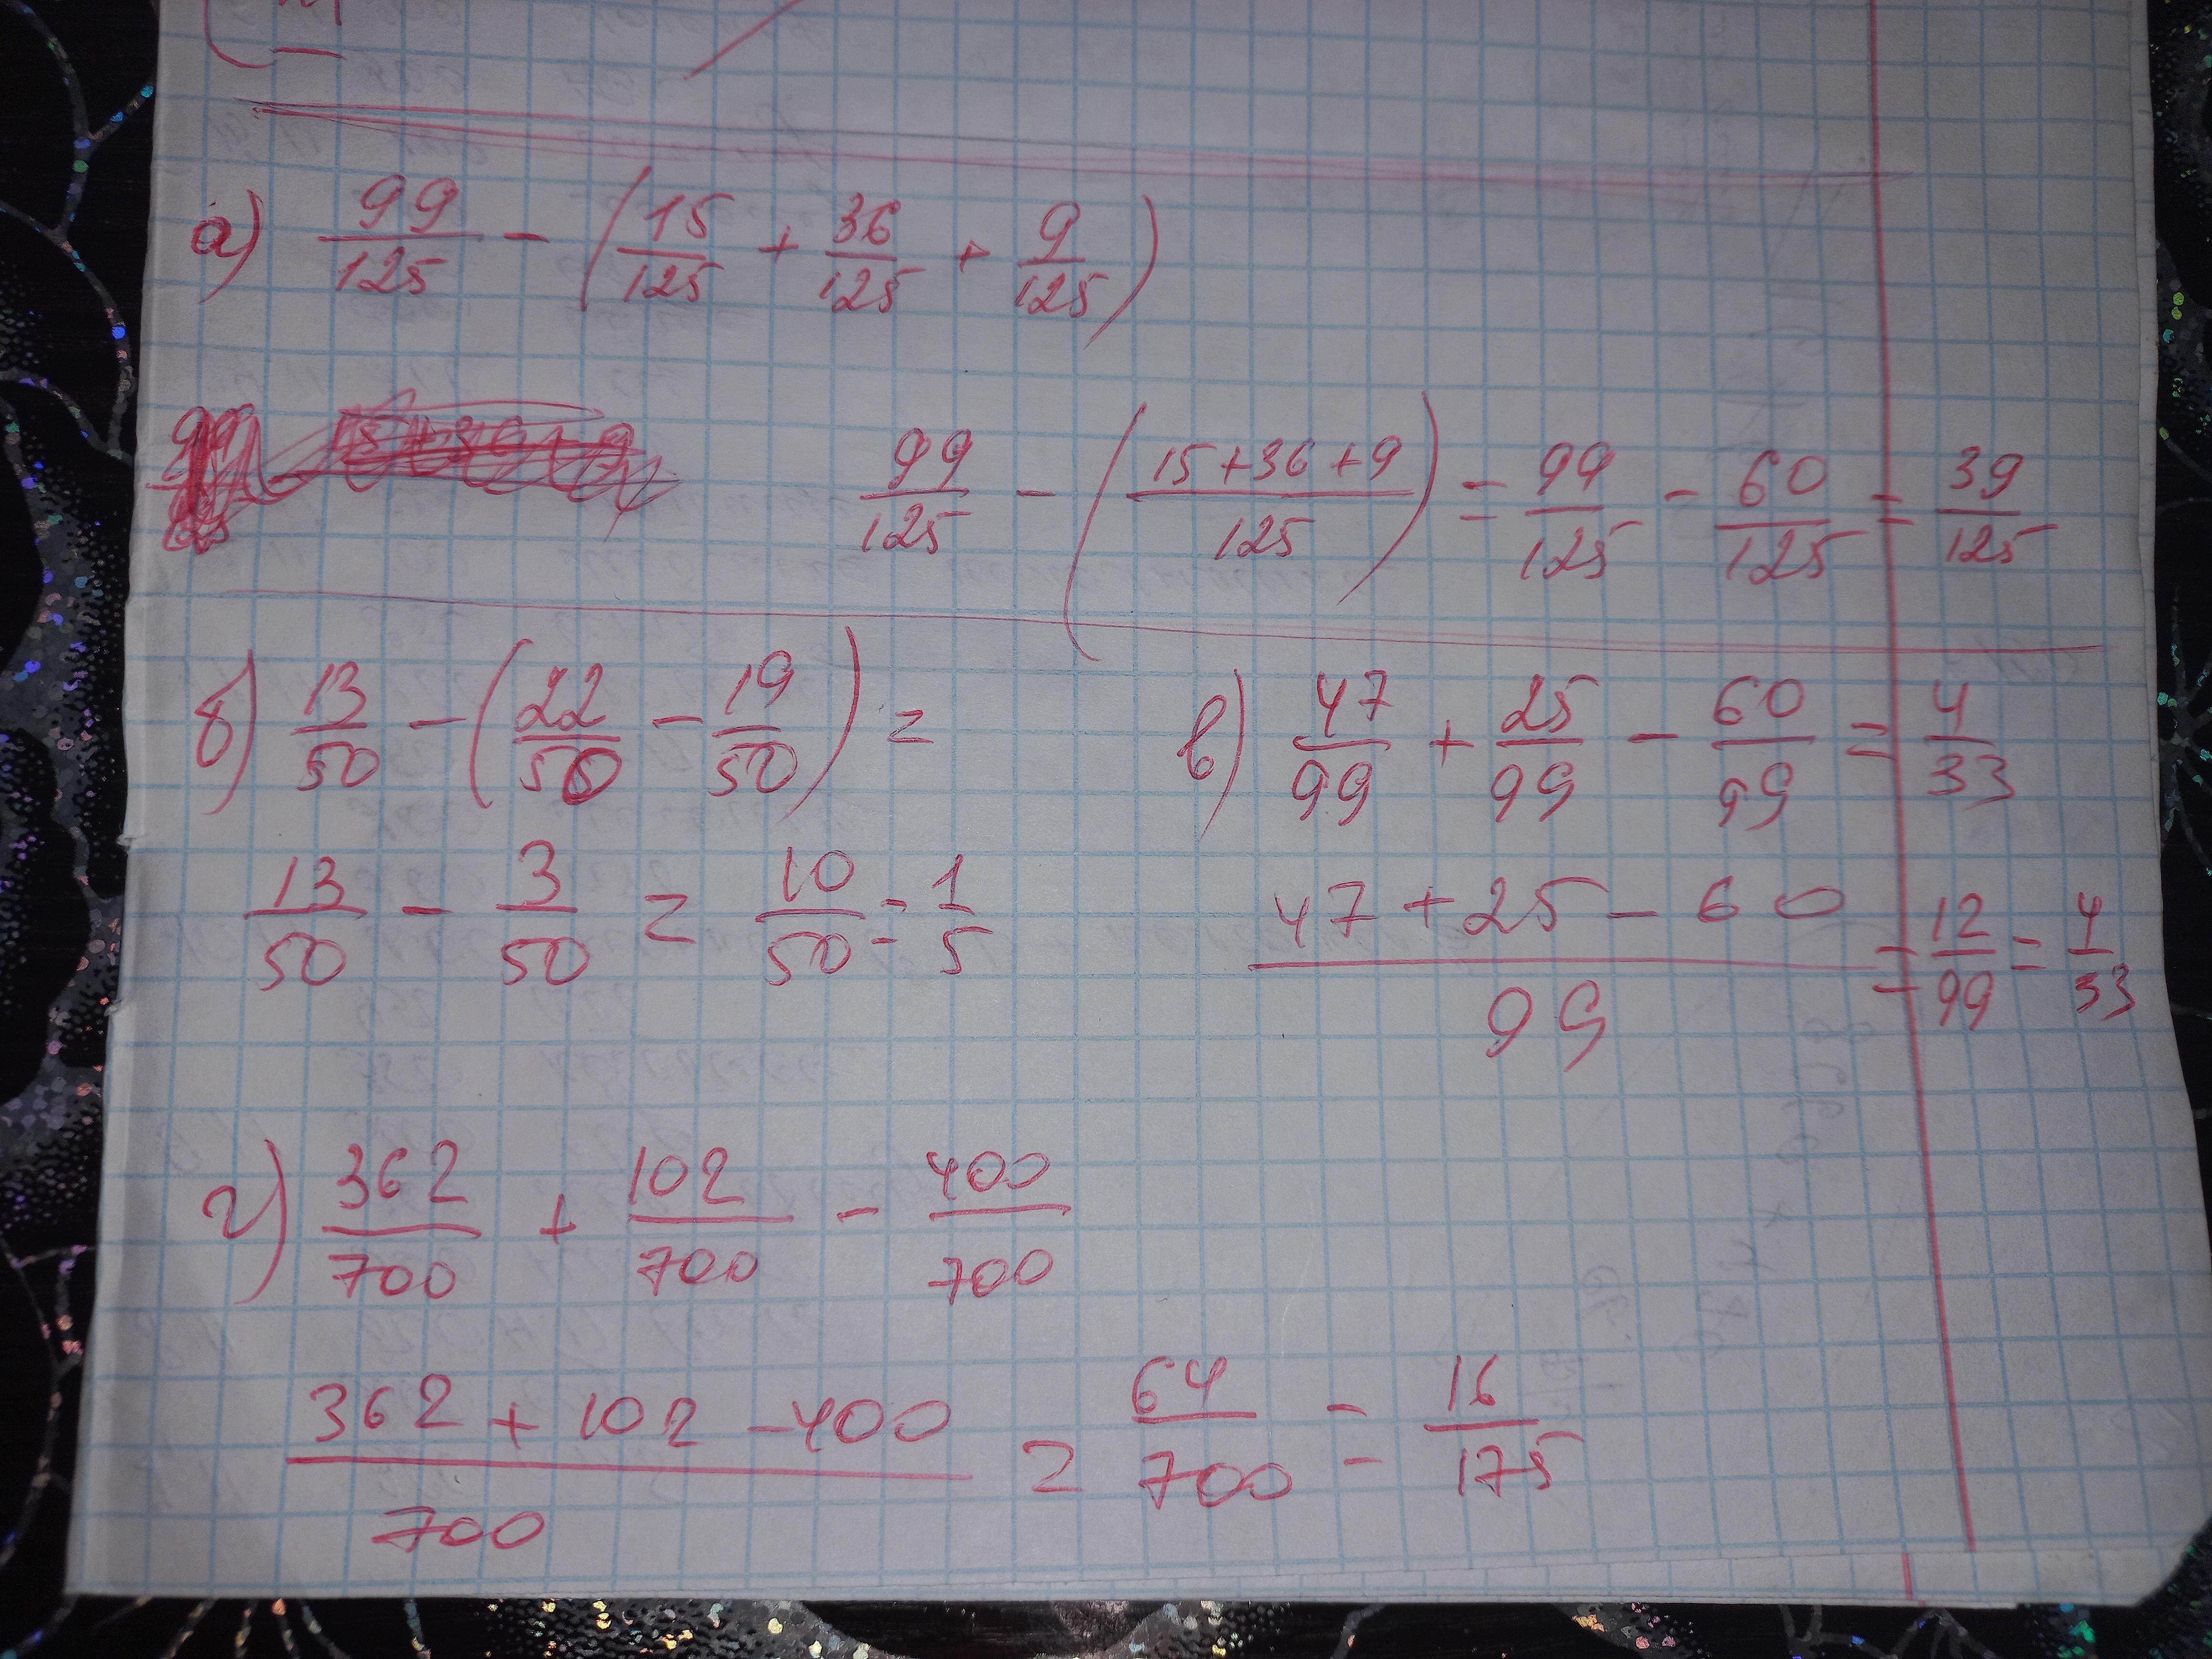 а) 99/125 - (15/125 + 36/125 + 9/125)
99/125 - (15+36+9/125) = 99/125 - 60/125 = 39/125
б) 13/50 - (22/50 - 19/50) =
13/50 - 3/50 = 10/50 = 1/5
в) 47/99 + 25/99 - 60/99 = 4/33
47+25-60/99 = 12/99 = 4/33
г) 362/700 + 102/700 - 400/700
362+102-400/700 = 64/700 = 16/175